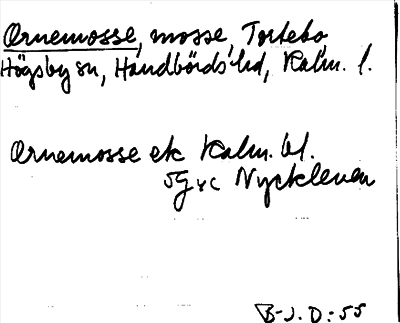 Ørnemosse, mosse, Tortebo,
Högsby sn, Handbörds hd, Kalm. l.
Ørnemosse ek Kalm. bl.
5G vc Nyckleven
B-J.D:55